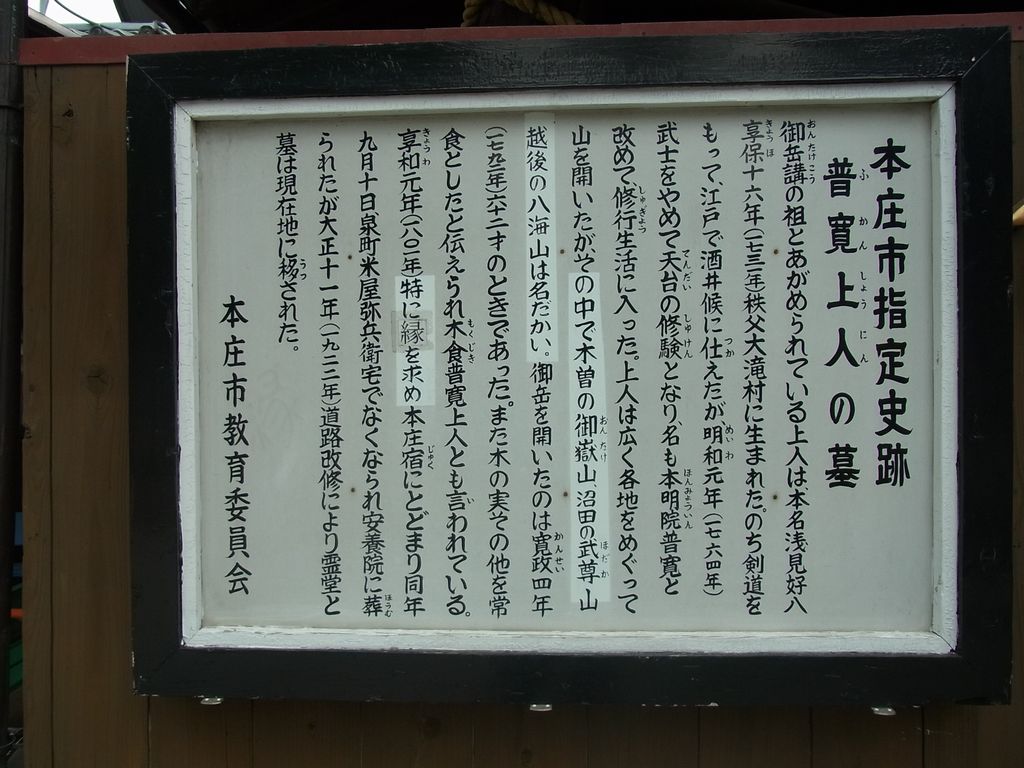 本庄市指定史跡
普寛上人の墓
御岳講の祖とあがめられている上人は、本名浅見好八
享保十六年(一七三一年)秩父大滝村に生まれた。のち剣道を
もって、江戸で酒井候に仕えたが、明和元年(一七六四年)
武士をやめて天台の修験となり、名も本明院普寛と
改めて修行生活に入った。上人は広く各地をめぐって
山を開いたがその中で木曽の御嶽山、沼田の武尊山
越後の八海山は名だかい。御岳を開いたのは寛政四年
(一七九二年)六十二才のときであった。また木の実その他を常
食としたと伝えられ木食普寛上人とも言われている。
享和元年(一八〇一年)特に縁を求め本庄宿にとどまり同年
九月十日泉町米屋弥兵衛宅でなくなられ安養院に葬
られたが大正十一年(一九二二年)道路改修により霊堂と
墓は現在地に移された。
本庄市教育委員会